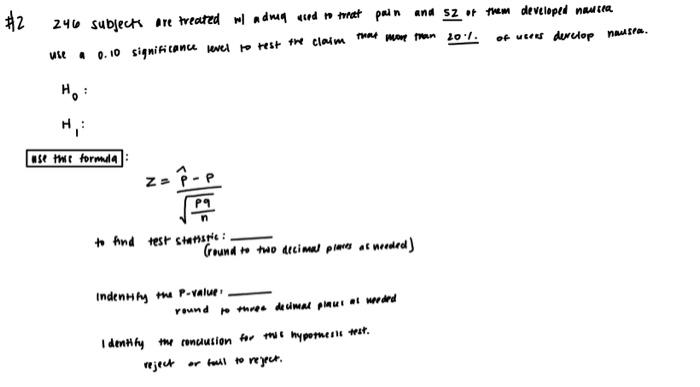 #2 246 subjects are treated w/ a drug used to treat pain and 52 of them developed nausea.
use a 0.10 significance level to test the claim that more than 20% of users develop nausea.
H₀ :
H₁ :
use this formula :
z = p̂ - p / √(pq/n)
to find test statistic : ______
(round to two decimal places as needed)
Indentify the P-value : ______
round to three decimal places as needed
Identify the conclusion for this hypothesis test.
reject or fail to reject.